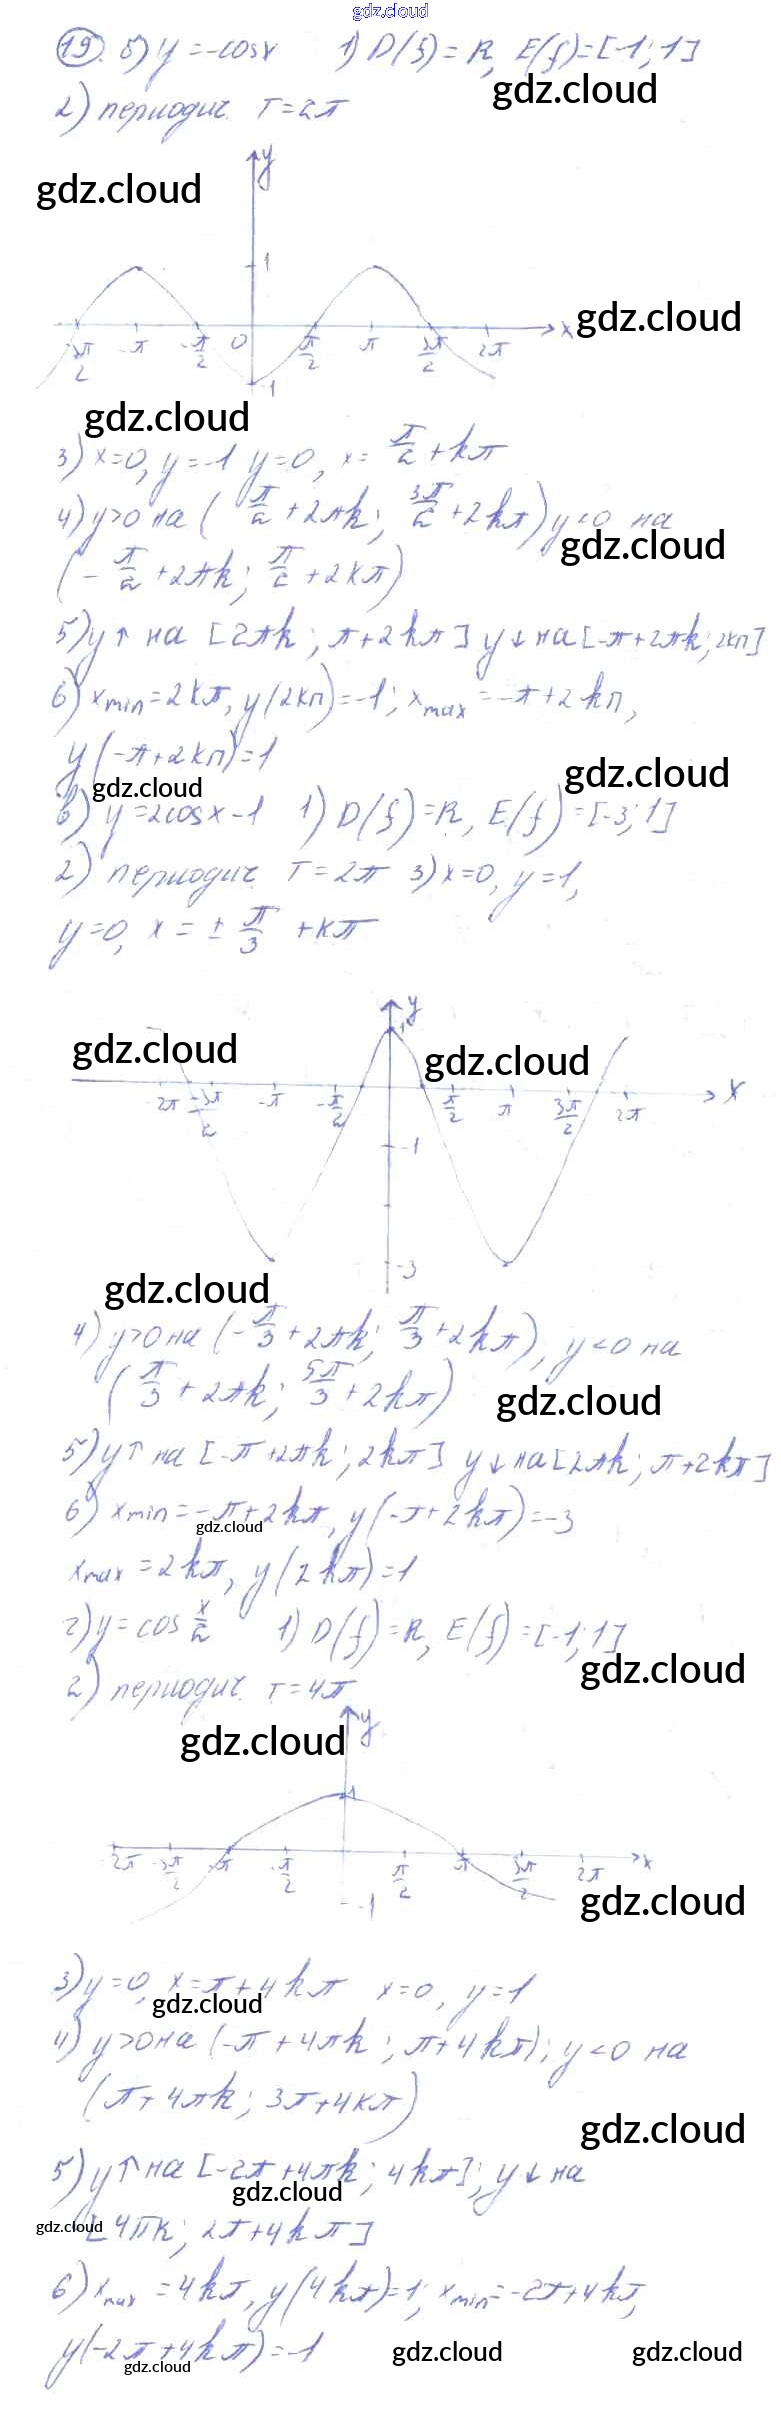 gdz.cloud
19. б) y = -cosx 1) D(f) = R, E(f) = [-1; 1]
gdz.cloud
2) периодич. T = 2π
gdz.cloud
y
1
gdz.cloud
x
-3π/2 -π -π/2 0 π/2 π 3π/2 2π
-1
gdz.cloud
3) x=0, y=-1 y=0, x= π/2 + kπ
4) y>0 на (π/2 + 2πk; 3π/2 + 2kπ) y<0 на
gdz.cloud
(-π/2 + 2πk; π/2 + 2kπ)
5) y↑ на [2πk; π+2kπ] y↓ на [-π+2πk; 2кп]
6) xmin = 2kπ, y(2кп) = -1; xmax = -π+2kп,
y(-π+2кп) = 1
gdz.cloud
gdz.cloud
в) y = 2cosx - 1 1) D(f) = R, E(f) = [-3; 1]
2) периодич. T = 2π 3) x=0, y=1,
y=0, x = ± π/3 + кπ
y
1
gdz.cloud
gdz.cloud
x
-2π -3π/2 -π -π/2 π/2 π 3π/2 2π
-1
-3
gdz.cloud
4) y>0 на (-π/3 + 2πk; π/3 + 2kπ), y<0 на
(π/3 + 2πk; 5π/3 + 2kπ)
gdz.cloud
5) y↑ на [-π+2πk; 2kπ] y↓ на [2πk; π+2kπ]
6) xmin = -π+2kπ, y(-π+2kπ) = -3
gdz.cloud
xmax = 2kπ, y(2kπ) = 1
г) y = cos x/2 1) D(f) = R, E(f) = [-1; 1]
gdz.cloud
2) периодич. T = 4π
gdz.cloud
y
1
-2π -3π/2 -π -π/2 π/2 π 3π/2 2π x
-1
gdz.cloud
3) y=0, x=π+4kπ x=0, y=1
gdz.cloud
4) y>0 на (-π+4πk; π+4kπ); y<0 на
(π+4πk; 3π+4кπ)
gdz.cloud
5) y↑ на [-2π+4πk; 4kπ]; y↓ на
gdz.cloud
gdz.cloud
[4πк; 2π+4kπ]
6) xmax = 4kπ, y(4kπ)=1; xmin = -2π+4kπ,
y(-2π+4kπ) = -1
gdz.cloud gdz.cloud
gdz.cloud